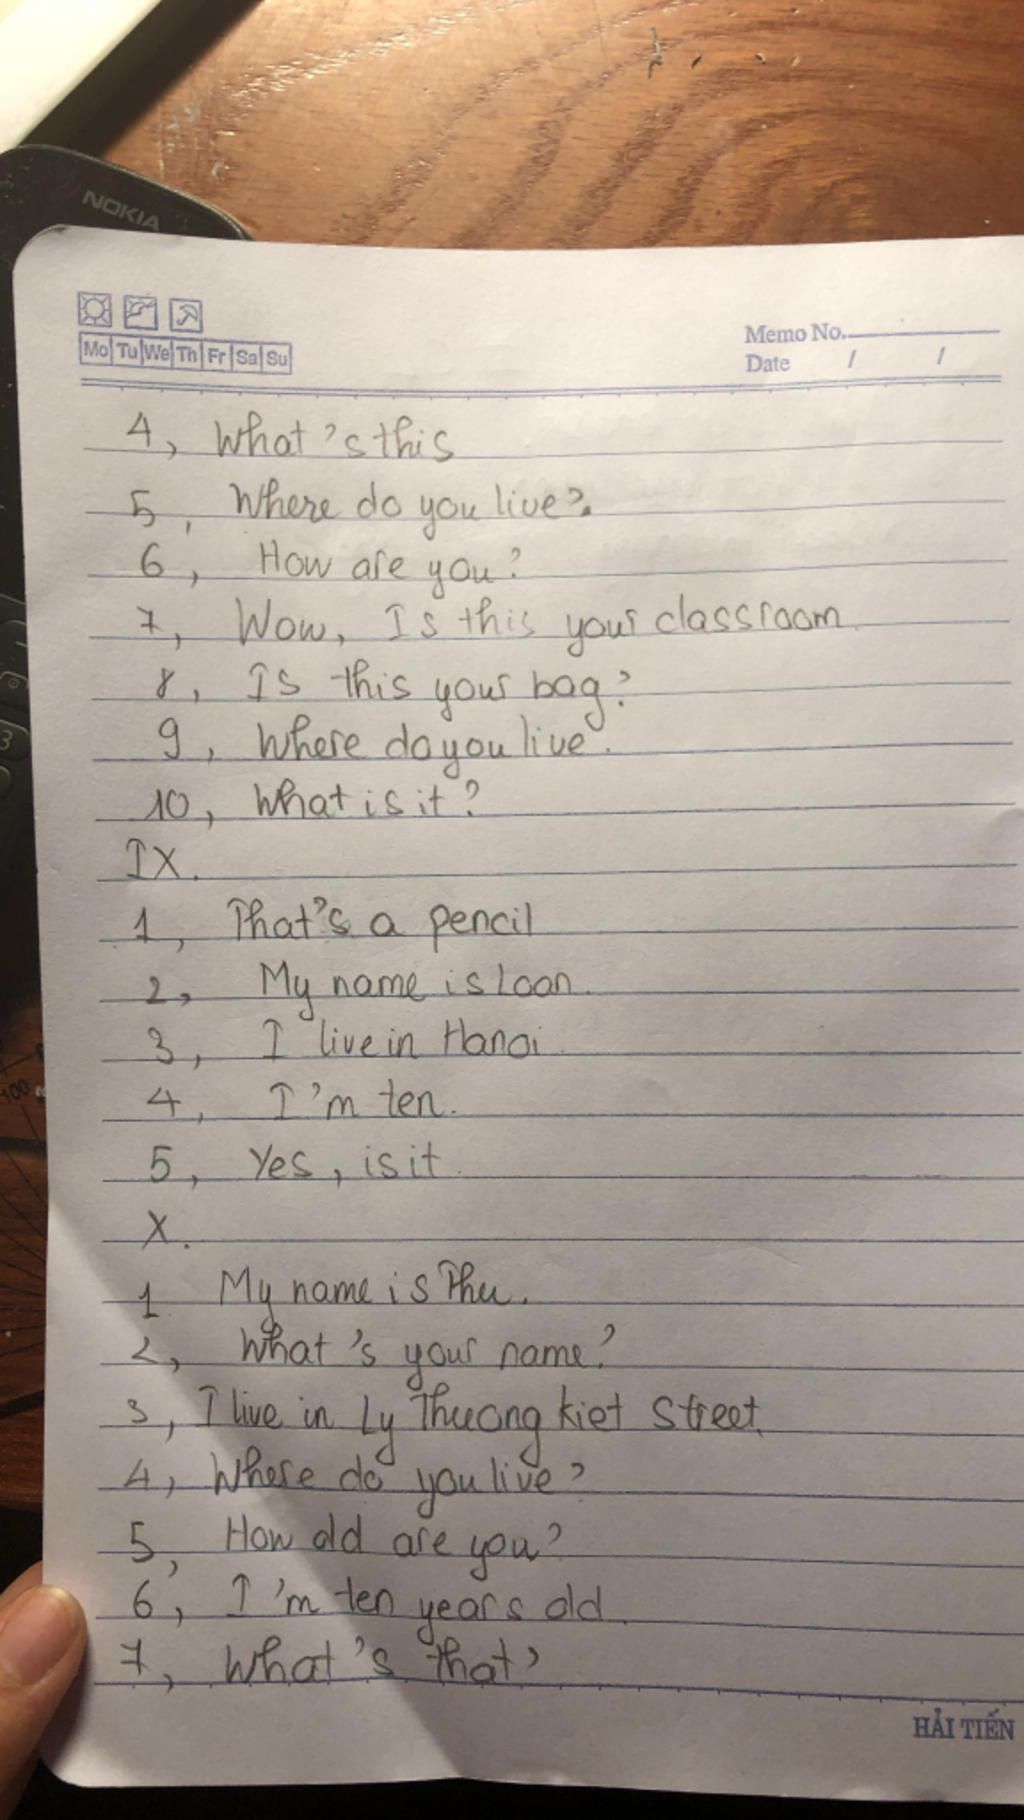 NOKIA
Mo Tu We Th Fr Sa Su
Memo No.
Date / /
4, What's this
5, Where do you live?.
6, How are you?
7, Wow, Is this your classroom
8, Is this your bag?
9, Where do you live?.
10, What is it?
IX.
1, That's a pencil
2, My name is Loan.
3, I live in Hanoi.
4, I'm ten.
5, Yes, is it.
X.
1 My name is Thu.
2, What's your name?
3, I live in Ly Thuong kiet Street.
4, Where do you live?
5, How old are you?
6, I'm ten years old.
7, What's that?
HẢI TIẾN
3
100